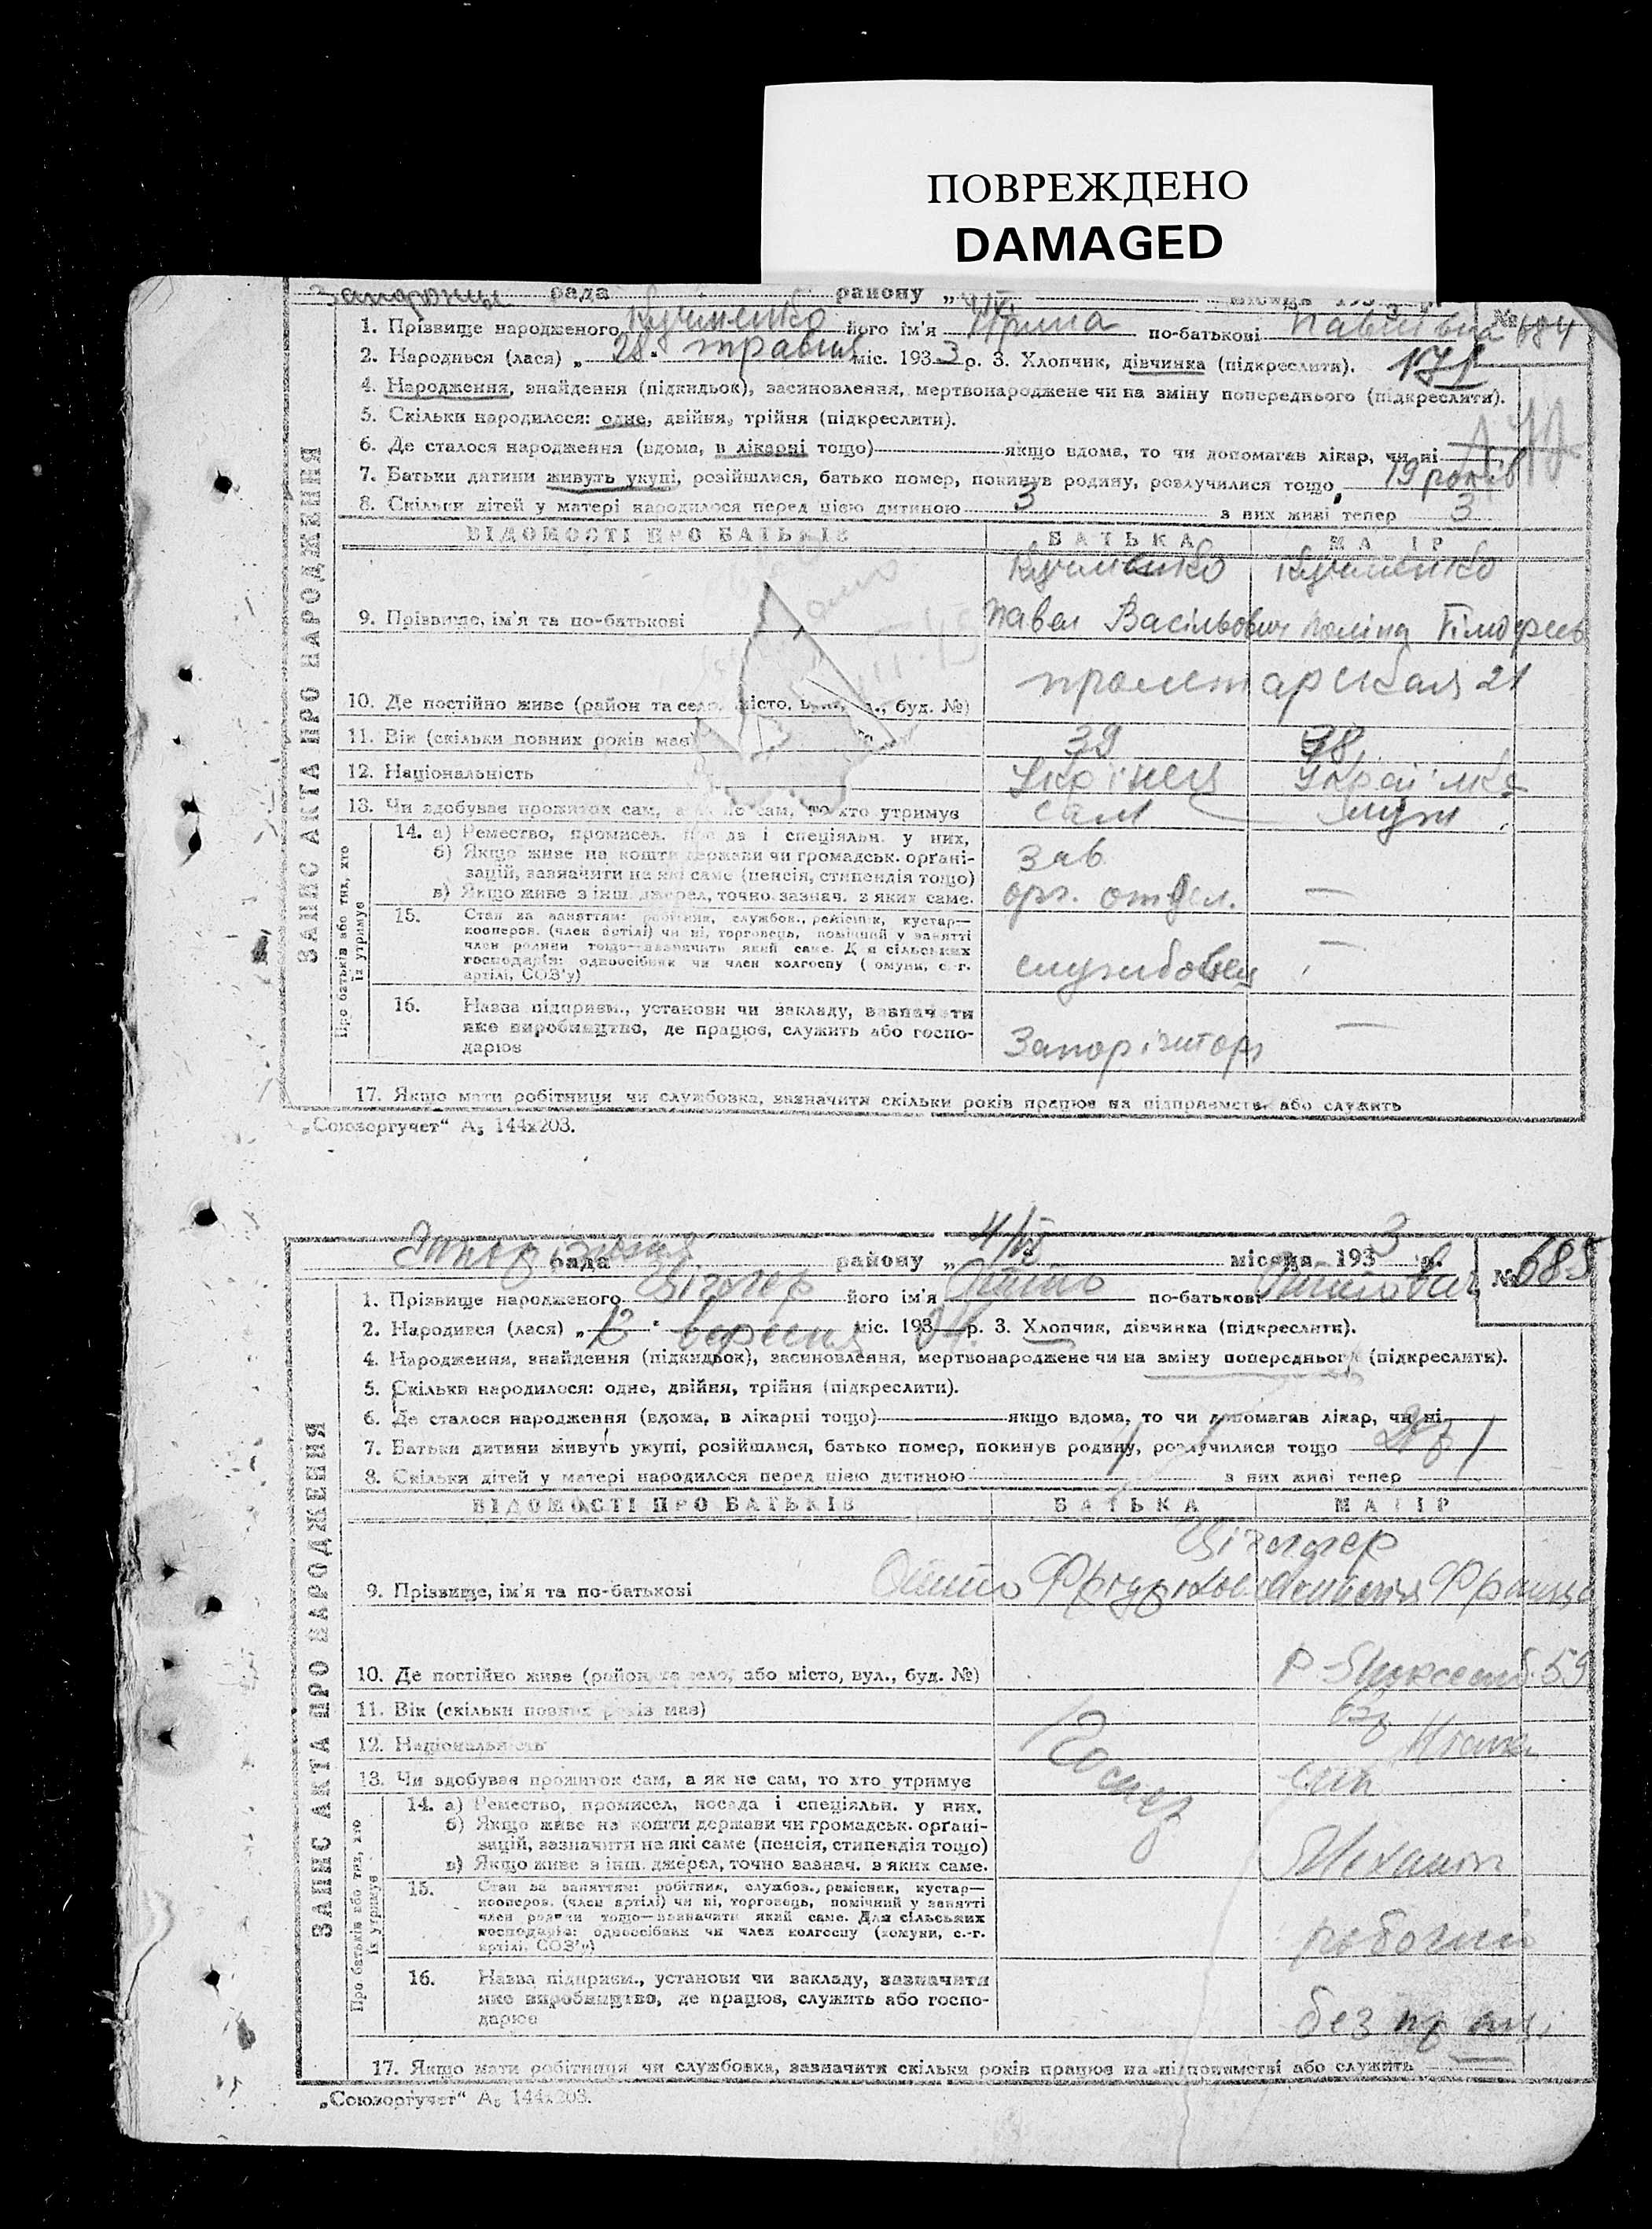 ПОВРЕЖДЕНО
DAMAGED
рада району „
1. Прізвище народженого Кучиненко його ім'я Ирина по-батькові Павлівна № 684
2. Народився (лася) „ 28 " травня міс. 1933 р. 3. Хлопчик, дівчинка (підкреслити). 171
4. Народження, знайдення (підкидьок), засиновлення, мертвонароджене чи на зміну попереднього (підкреслити).
5. Скільки народилося: одне, двійня, трійня (підкреслити).
6. Де сталося народження (вдома, в лікарні тощо) якщо вдома, то чи допомагав лікар, чи ні
7. Батьки дитини живуть укупі, розійшлися, батько помер, покинув родину, розлучилися тощо 19 років
8. Скільки дітей у матері народилося перед цією дитиною 3 з них живі тепер 3
ВІДОМОСТІ ПРО БАТЬКІВ БАТЬКА МАТІР
ЗАПИС АКТА ПРО НАРОДЖЕННЯ
Кучиненко Кучиненко
9. Прізвище, ім'я та по-батькові Павел Васільович
10. Де постійно живе (район та село, місто, буд. №) пролетарская 21
11. Вік (скільки повних років має) 39 38
12. Національність Українец Українка
13. Чи здобуває прожиток сам, а як не сам, то хто утримує сам муж
Про батьків або тих, хто їх утримує
14. а) Ремество, промисел, посада і спеціяльн. у них.
б) Якщо живе на кошти держави чи громадськ. організацій, зазначити на які саме (пенсія, стипендія тощо) зав
в) Якщо живе з інш. джерел, точно зазнач. з яких саме. орг. отдел. —
15. Стан за заняттям: робітник, службов., ремісник, кустар—
кооперов. (член артілі) чи ні, торговець, помічний у занятті
член родини тощо—зазначить який саме. Для сільських
господарів: одноосібник чи член колгоспу (комуни, с.-г.
артілі, СОЗ'у) службовец —
16. Назва підприєм., установи чи закладу, зазначити
яке виробництво, де працює, служить або госпо-
дарює Запоріжторг —
17. Якщо мати робітниця чи службовка, зазначити скільки років працює на підприємстві або служить
„Союзоргучет“ А₅ 144х203.
рада району „ 4/VI місяця 1933 р. № 685
1. Прізвище народженого його ім'я Отто по-батькові Оттович
2. Народився (лася) „ " вересня міс. 193 р. 3. Хлопчик, дівчинка (підкреслити).
4. Народження, знайдення (підкидьок), засиновлення, мертвонароджене чи на зміну попереднього (підкреслити).
5. Скільки народилося: одне, двійня, трійня (підкреслити).
6. Де сталося народження (вдома, в лікарні тощо) якщо вдома, то чи допомагав лікар, чи ні
7. Батьки дитини живуть укупі, розійшлися, батько помер, покинув родину, розлучилися тощо
8. Скільки дітей у матері народилося перед цією дитиною з них живі тепер
ВІДОМОСТІ ПРО БАТЬКІВ БАТЬКА МАТІР
ЗАПИС АКТА ПРО НАРОДЖЕННЯ
9. Прізвище, ім'я та по-батькові Отто
10. Де постійно живе (район та село, або місто, вул., буд. №) 59
11. Вік (скільки повних років має)
12. Національність
13. Чи здобуває прожиток сам, а як не сам, то хто утримує
Про батьків або тих, хто їх утримує
14. а) Ремество, промисел, посада і спеціяльн. у них.
б) Якщо живе на кошти держави чи громадськ. органі-
зацій, зазначити на які саме (пенсія, стипендія тощо)
в) Якщо живе з інш. джерел, точно зазнач. з яких саме.
15. Стан за заняттям: робітник, службов., ремісник, кустар—
кооперов. (член артілі) чи ні, торговець, помічний у занятті
член родини тощо—зазначити який саме. Для сільських
господарів: одноосібник чи член колгоспу (комуни, с.-г.
артілі, СОЗ'у) робочий
16. Назва підприєм., установи чи закладу, зазначити
яке виробництво, де працює, служить або госпо-
дарює без
17. Якщо мати робітниця чи службовка, зазначити скільки років працює на підприємстві або служить
„Союзоргучет“ А₅ 144х203.